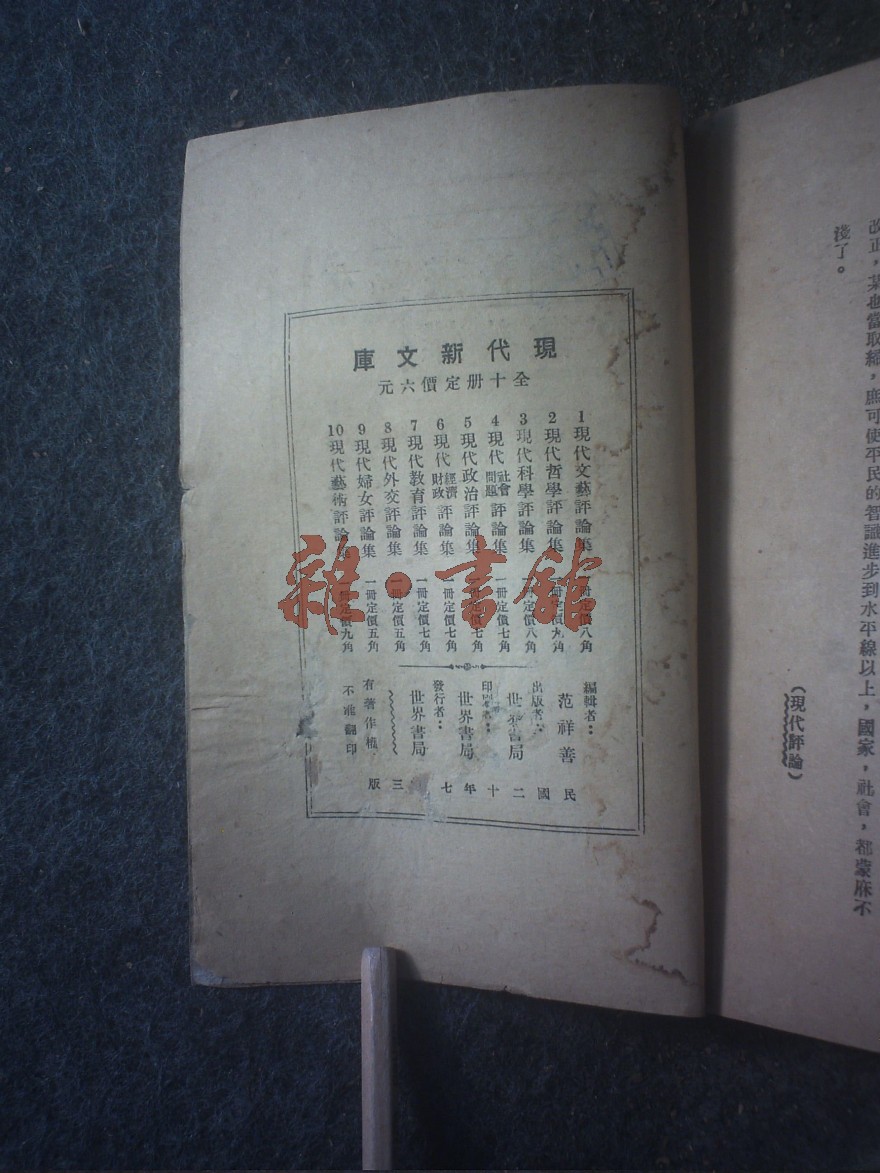 改正，某也當取締，庶可使平民的智識進步到水平線以上，國家，社會，都蒙庥不
淺了。
（現代評論）
現代新文庫
全十册定價六元
1現代文藝評論集 一冊定價八角
2現代哲學評論集 一冊定價九角
3現代科學評論集 一冊定價八角
4現代社會問題評論集 一冊定價七角
5現代政治評論集 一冊定價七角
6現代經濟財政評論集 一冊定價七角
7現代教育評論集 一冊定價七角
8現代外交評論集 一冊定價五角
9現代婦女評論集 一冊定價五角
10現代藝術評論集 一冊定價九角
編輯者：范祥善
出版者：世界書局
印刷者：世界書局
發行者：世界書局
有著作權
不准翻印
民國二十年七 三版
雜·書館